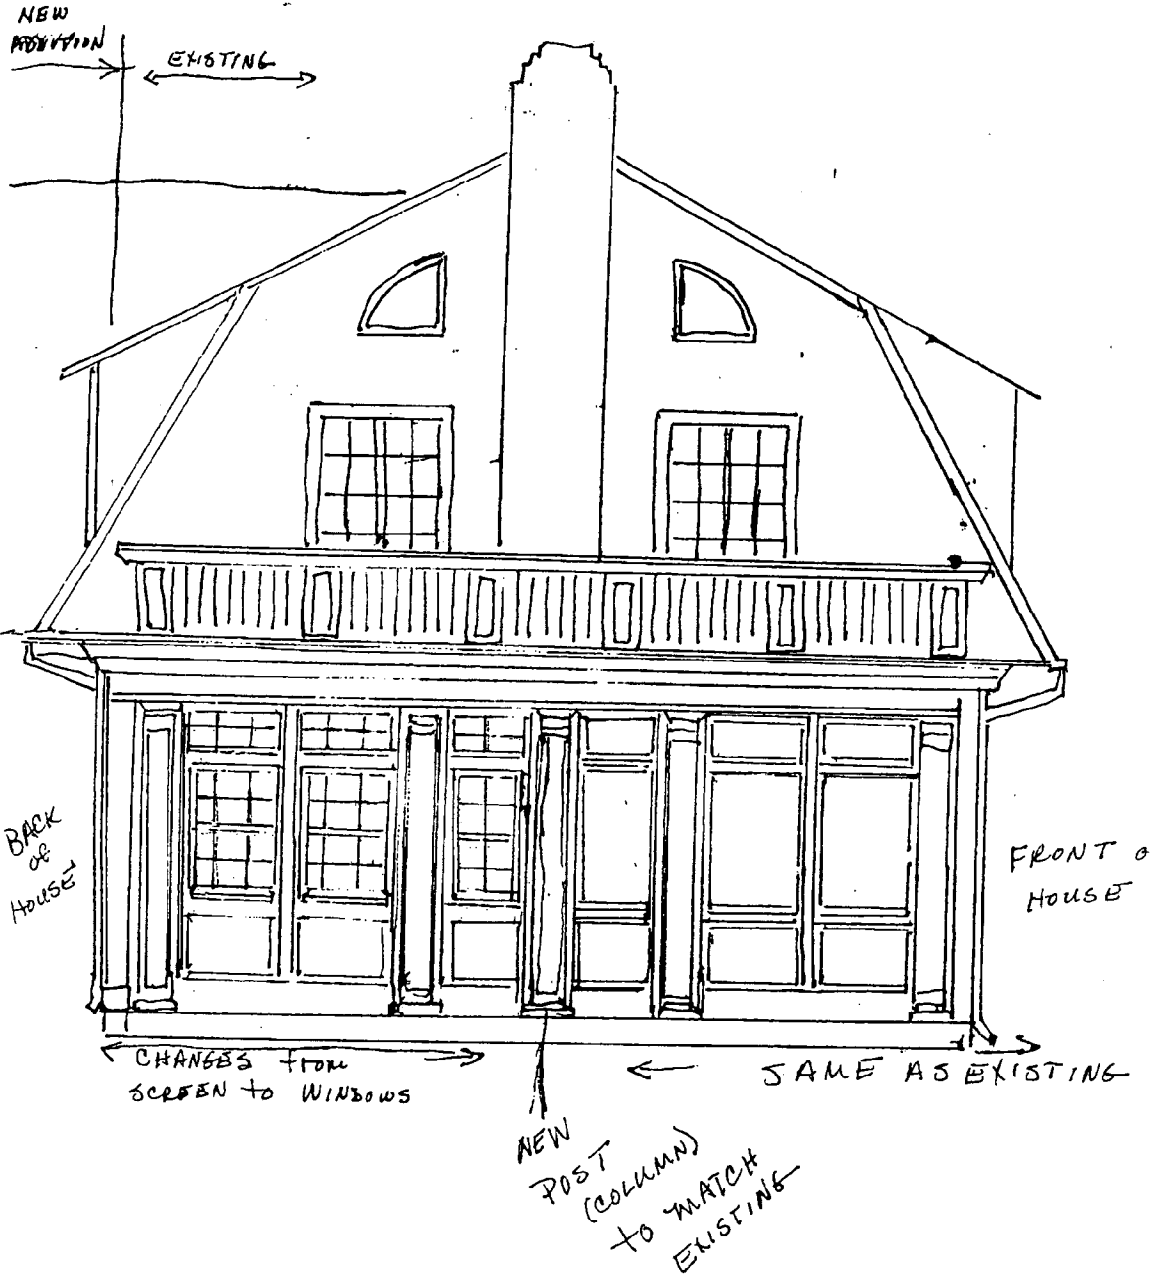 NEW
ADDITION
EXISTING
BACK
of
HOUSE
FRONT o
HOUSE
CHANGES from
SCREEN to WINDOWS
SAME AS EXISTING
NEW
POST
(COLUMN)
to MATCH
EXISTING